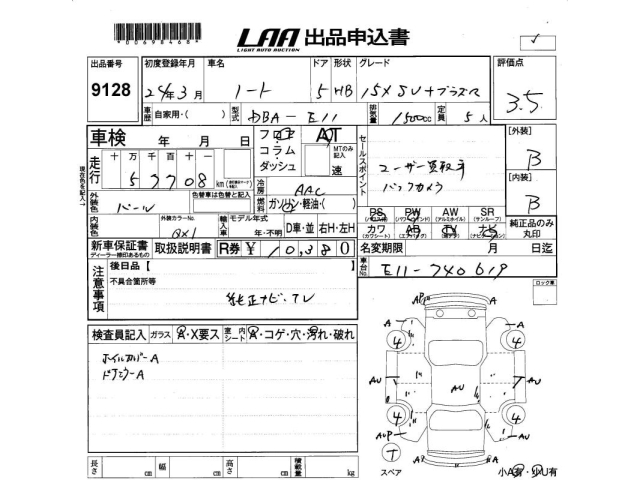 *00698468*
LAA 出品申込書
LIGHT AUTO AUCTION
出品番号 初度登録年月 車名 ドア 形状 グレード 評価点
9128 24年3月 ノート 5 HB 15X SV+プラズマ 3.5
車歴 自家用・( ) 型式 DBA-E11 排気量 1500cc 定員 5人
車検 年 月 日 フロア AT
コラム MTのみ記入
ダッシュ 速
走行 十 万 千 百 十
57708 km
セールスポイント
ユーザー買取車
バックカメラ
[外装]
B
[内装]
B
現在色を記入→
外装色 パール 色替車は色替と記入
冷房 AAC
燃料 ガソリン・軽油・( )
PS PW AW SR
(パワステ) (パワーウィンド) (アルミホイル) (サンルーフ)
カワ AB TV ナビ
(カワシート) (エアバッグ) (ナビゲーション)
純正品のみ丸印
内装色 外装カラーNo. QX1 輸入車 モデル年式 年・不明 D車・並 右H・左H
新車保証書 取扱説明書 R券 ¥ 10,380 名変期限 月 日迄
ディーラー捺印あるもの
車台No. E11-740619
注意事項 後日品【
不具合箇所等
純正ナビ・TV
ロック車
検査員記入 ガラス A・X要ス 室内シート A・コゲ・穴・汚れ・破れ
ホイルカバーA
ドアミラーA
AP A
A A
4 4
AU AU AU
4 4
AUP A
T AU A
スペア 小A有・少U有
長さ cm 幅 cm 高さ cm 積載量 kg